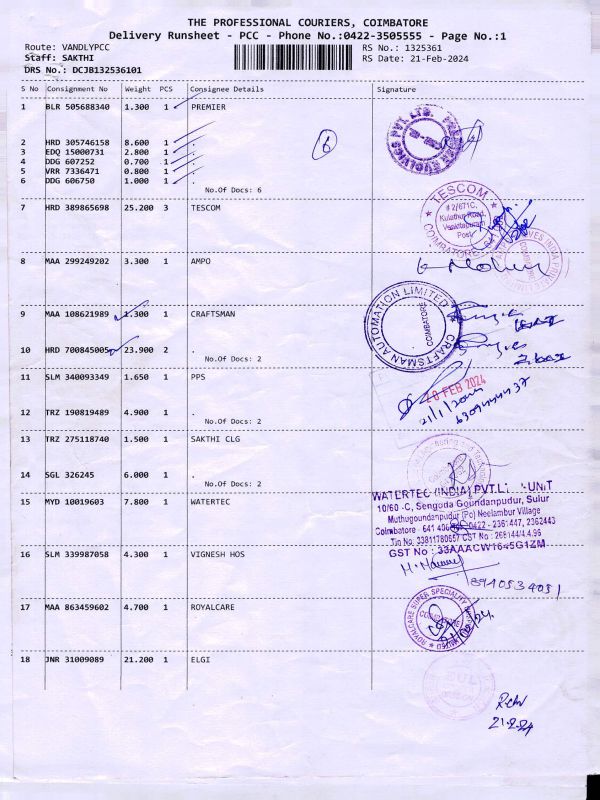 THE PROFESSIONAL COURIERS, COIMBATORE
Delivery Runsheet - PCC - Phone No.:0422-3505555 - Page No.:1
Route: VANDLYPCC RS No.: 1325361
Staff: SAKTHI RS Date: 21-Feb-2024
DRS No.: DCJB132536101
S No Consignment No Weight PCS Consignee Details Signature
1 BLR 505688340 1.300 1 PREMIER
2 HRD 305746158 8.600 1 .
3 EDQ 15000731 2.800 1 .
4 DDG 607252 0.700 1 .
5 VRR 7336471 0.800 1 .
6 DDG 606750 1.000 1 .
No.Of Docs: 6
6
7 HRD 389865698 25.200 3 TESCOM
TESCOM
# 2/671C,
Kulathur Road,
Venkitapuram
Post,
COIMBATORE
8 MAA 299249202 3.300 1 AMPO
9 MAA 108621989 1.300 1 CRAFTSMAN
CRAFTSMAN AUTOMATION LIMITED
COIMBATORE
10 HRD 700845005 23.900 2 .
No.Of Docs: 2
11 SLM 340093349 1.650 1 PPS
FEB 2024
12 TRZ 190819489 4.900 1 .
No.Of Docs: 2
13 TRZ 275118740 1.500 1 SAKTHI CLG
14 SGL 326245 6.000 1 .
No.Of Docs: 2
15 MYD 10019603 7.800 1 WATERTEC
WATERTEC (INDIA) PVT.LT UNIT
10/60 -C, Sengoda Goundanpudur, Sulur
Muthugoundanpudur (Po) Neelambur Village
Coimbatore - 641 406 0422 - 2361447, 2362443
Tin No: 33811780657 CST No : 268144/4.4.96
GST No : 33AAACW1645G1ZM
16 SLM 339987058 4.300 1 VIGNESH HOS
8910534051
17 MAA 863459602 4.700 1 ROYALCARE
ROYALCARE SUPER SPECIALITY
18 JNR 31009089 21.200 1 ELGI
21-2-24